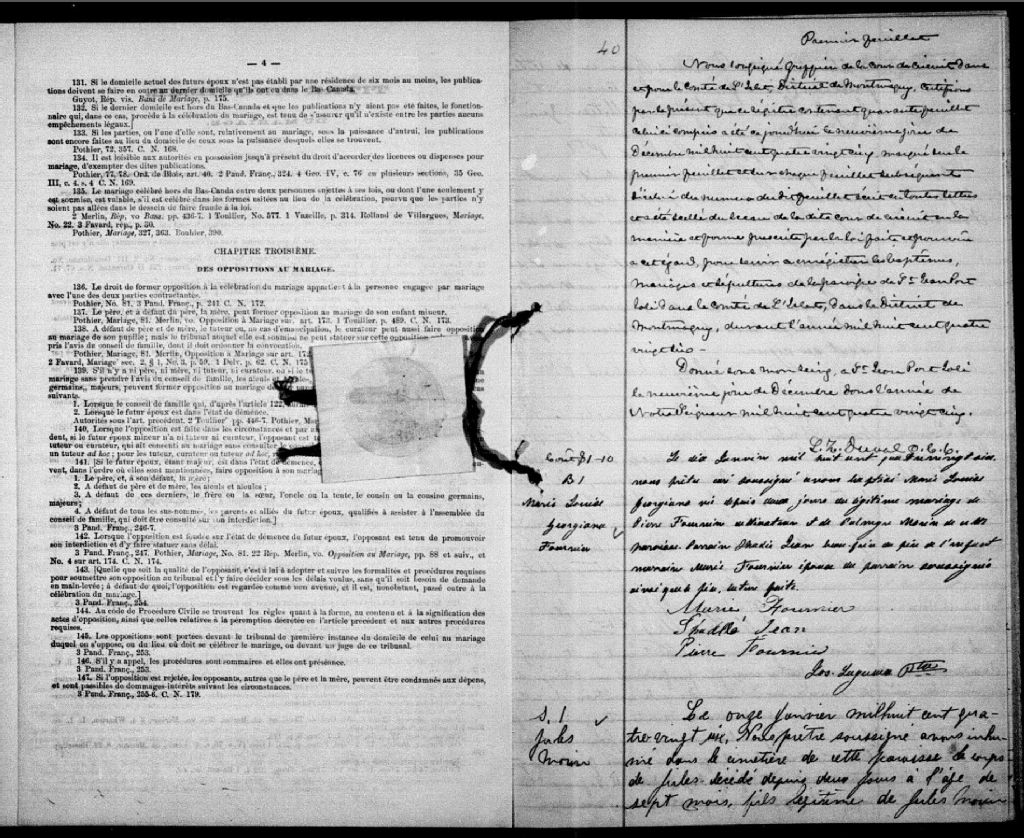 — 4 —
131. Si le domicile actuel des futurs époux n'est pas établi par une résidence de six mois au moins, les publica-
tions doivent se faire en outre au dernier domicile qu'ils ont eu dans le Bas-Canada.
Guyot, Rép. vis. Bans de Mariage, p. 175.
132. Si le dernier domicile est hors du Bas-Canada et que les publications n'y aient pas été faites, le fonction-
naire qui, dans ce cas, procède à la célébration du mariage, est tenu de s'assurer qu'il n'existe entre les parties aucuns
empêchements légaux.]
133. Si les parties, ou l'une d'elle sont, relativement au mariage, sous la puissance d'autrui, les publications
sont encore faites au lieu du domicile de ceux sous la puissance desquels elles se trouvent.
Pothier, 72, 357. C. N. 168.
134. Il est loisible aux autorités en possession jusqu'à présent du droit d'accorder des licences ou dispenses pour
mariage, d'exempter des dites publications.
Pothier, 77, 78. Ord. de Blois, art. 40. 2 Pand. Franç., 324. 4 Geo. IV, c. 76 en plusieurs sections, 35 Geo.
III, c. 4. s. 4 C. N. 169.
135. Le mariage célébré hors du Bas-Canada entre deux personnes sujettes à ses lois, ou dont l'une seulement y
est soumise, est valable, s'il est célébré dans les formes usitées au lieu de la célébration, pourvu que les parties n'y
soient pas allées dans le dessein de faire fraude à la loi.
2 Merlin, Rép, vo Bans. pp. 436-7. 1 Toullier, No. 577. 1 Vazeille, p. 314. Rolland de Villargues, Mariage,
No. 22. 3 Favard, rép., p. 30.
Pothier, Mariage, 327, 363. Bouhier, 390.
CHAPITRE TROISIÈME.
DES OPPOSITIONS AU MARIAGE.
136. Le droit de former opposition à la célébration du mariage appartient à la personne engagée par mariage
avec l'une des deux parties contractantes.
Pothier, No. 81. 3 Pand. Franç., p. 241 C. N. 172.
137. Le père, et à défaut du père, la mère, peut former opposition au mariage de son enfant mineur.
Pothier, Mariage, 81. Merlin, vo. Opposition à Mariage sur art. 173. 1 Toullier. p. 489. C. N. 173.
138. A défaut de père et de mère, le tuteur ou, au cas d'émancipation, le curateur peut aussi faire opposition
au mariage de son pupille; mais le tribunal auquel elle est soumise ne peut statuer sur cette opposition
pris l'avis du conseil de famille, dont il doit ordonner la convocation.
Pothier, Mariage, 81. Merlin, Opposition à Mariage sur art. 175
2 Favard, Mariage sec. 2, § 1, No. 3, p. 59. 1 Delv. p. 62. C. N. 175
139. S'il n'y a ni père, ni mère, ni tuteur, ni curateur, ou si le
mariage sans prendre l'avis du conseil de famille, les aïeuls
germains, majeurs, peuvent former opposition au mariage de
suivants.
1. Lorsque le conseil de famille qui, d'après l'article 122,
2. Lorsque le futur époux est dans l'état de démence.
Autorités sous l'art. précédent. 2 Toullier pp. 446-7. Pothier, Ma
140. Lorsque l'opposition est faite dans les circonstances et par
dent, si le futur époux mineur n'a ni tuteur ni curateur, l'opposant est te
tuteur ou curateur, qui ait consenti au mariage sans consulter le conseil de
un tuteur ad hoc; pour les tuteur, curateur ou tuteur ad hoc,
141. [Si le futur époux, étant majeur, est dans l'état de démence,
vent, dans l'ordre où elles sont mentionnées, faire opposition à son mariage
1. Le père, et, à son défaut, la mère;
2. A défaut de père et de mère, les aïeuls et aïeules;
3. A défaut de ces derniers, le frère ou la sœur, l'oncle ou la tante, le cousin ou la cousine germains,
majeurs;
4. A défaut de tous les sus-nommés, les parents et alliés du futur époux, qualifiés à assister à l'assemblée du
conseil de famille, qui doit être consulté sur son interdiction.]
3 Pand. Franç., 246-7.
142. Lorsque l'opposition est fondée sur l'état de démence du futur époux, l'opposant est tenu de promouvoir
son interdiction et d'y faire statuer sans délai.
3 Pand. Franç., 247. Pothier, Mariage, No. 81. 22 Rép. Merlin, vo. Opposition au Mariage, pp. 88 et suiv., et
No. 4 sur art. 174. C. N. 174.
143. [Quelle que soit la qualité de l'opposant, c'est à lui à adopter et suivre les formalités et procédures requises
pour soumettre son opposition au tribunal et l'y faire décider sous les délais voulus, sans qu'il soit besoin de demande
en main-levée; à défaut de quoi, l'opposition est regardée comme non avenue, et il est, nonobstant, passé outre à la
célébration du mariage.]
3 Pand. Franç., 254.
144. Au code de Procédure Civile se trouvent les règles quant à la forme, au contenu et à la signification des
actes d'opposition, ainsi que celles relatives à la péremption décrétée en l'article précédent et aux autres procédures
requises.
145. Les oppositions sont portées devant le tribunal de première instance du domicile de celui au mariage
duquel on s'oppose, ou du lieu où doit se célébrer le mariage, ou devant un juge de ce tribunal.
3 Pand. Franç., 253.
146. S'il y a appel, les procédures sont sommaires et elles ont préséance.
3 Pand. Franç., 253.
147. Si l'opposition est rejetée, les opposants, autres que le père et la mère, peuvent être condamnés aux dépens,
et sont passibles de dommages-intérêts suivant les circonstances.
3 Pand. Franç., 255-6. C. N. 179.
40
Premier feuillet
Nous soussigné Greffier de la Cour de Circuit dans
et pour le Comté de l'Islet, District de Montmagny, Certifions
par le présent que ce régistre contenant quarante feuillets
celui-ci compris a été ce jourd'hui le neuvième jour de
Décembre mil huit cent quatre vingt cinq, marqué sur le
premier feuillet et sur chaque feuillet subséquent
du numéro du dit feuillet écrit en toutes lettres
et a été scellé du sceau de la dite cour de circuit en la
manière et forme prescrite par la loi
a cet égard, pour servir a enregistrer les baptêmes,
mariages et sépultures de la paroisse de St Jean Port
Joli dans le Comté de l'Islet, dans le District de
Montmagny, durant l'année mil huit cent quatre
vingt six -
Donné sous mon seing, a St Jean Port Joli
le neuvième jour de Décembre dans l'année de
Notre Seigneur mil huit cent quatre vingt cinq.
Duval G.C.C.
B 1
Marie Louise
Georgiana
Fournier
Le dix Janvier mil huit cent quatrevingt six
nous prêtre curé soussigné avons baptisé Marie Louise
Georgiana née depuis deux jours du légitime mariage de
Pierre Fournier cultivateur & de Palmyre Morin de cette
paroisse. Parrain Jean beau frère du père de l'enfant
marraine Marie Fournier épouse du parrain soussignés
ainsi que le père. Lecture faite.
Marie Fournier
Jean
Pierre Fournier
Ptre
S. 1
Jules
Morin
Le onze Janvier mil huit cent qua-
tre-vingt six, Nous prêtre soussigné avons inhu-
mé dans le cimetière de cette paroisse le corps
de Jules décédé depuis deux jours à l'âge de
sept mois, fils légitime de Jules Morin